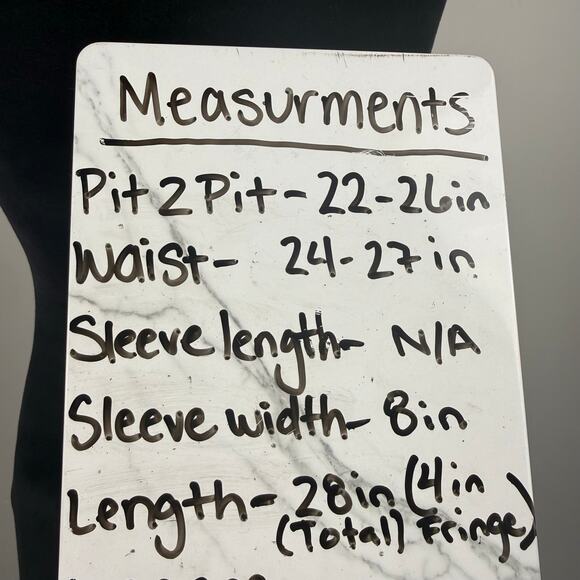 Measurments
Pit 2 Pit - 22-26in
Waist - 24-27in
Sleeve length - N/A
Sleeve width - 8in
Length - 28in (4in
(Total) Fringe)